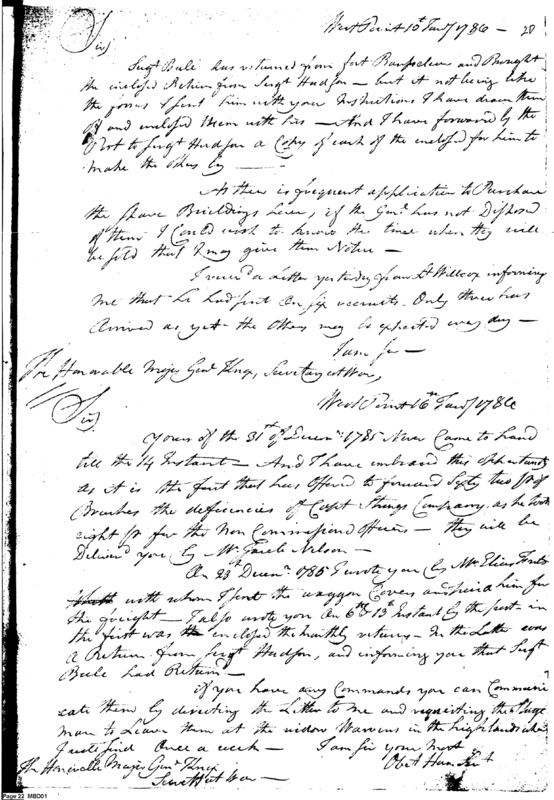 West Point 10th Jany 1786 — 28
Sir
Sergt Bule has returned from fort and Brought
the inclosed Return from Sergt Hudson — but it not being like
the forms I sent him with your Instructions I have drawn them
off and inclosed them with his — And I have forward by the
Post to Sergt Hudson a Copy of each of the inclosed for him to
make the others by —
As there is frequent application to Purchase
the Buildings here, if the Genl has not Disposed
of them I Could wish to know the time when they will
be sold that I may give them Notice —
I receivd a Letter yesterday from Lt Willcox informing
me that he had sent on six recruits. Only three has
Arrived as yet the others may be expected every day —
I am Sir —
The Honorable Major Genl Knox, Secretary at War,
West Point 16th Jany 1786
Sir
Yours of the 31st of Decemr 1785 Never Came to hand
till the 14 Instant — And I have embraced this oppertunity
as it is the first that has offered to forward Sixty two pr of
Breeches the deficiencies of Capt Strongs Company, as he took
eight pr for the Non Commissiond officers — they will be
Deliverd you by Mr Nelson —
On 23d Decemr 1785 I wrote you by Mr Elias
with whom I sent the waggon Covers and paid him for
the freight — I also wrote you On 6th & 13th Instant by the post in
the first was inclosed the monthly returns — In the Letter was
a Return from Sergt Hudson, and informing you that Sergt
Bule had Returnd —
if you have any Commands you can Communi
cate them by directing the Letter to me and requesting the Stage
man to Leave them at the widow Warrens in the highlands where
I send Once a week — I am Sir your Most
Obet Hum Sert
The Honorable Major Genl Knox
Secret at War —
Page 22 MBD01